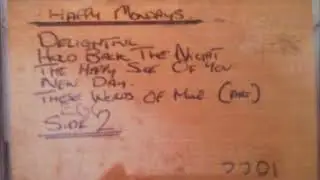 HAPPY MONDAYS.
DELIGHTFUL
HOLD BACK THE NIGHT
THE HAPPY SIDE OF YOU
NEW DAY.
THESE WORDS OF MINE (PART)
SIDE 2